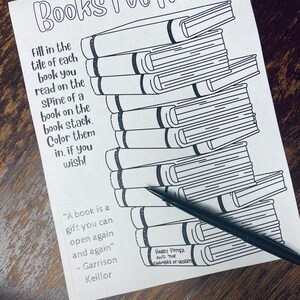 Books I've
Fill in the
tile of each
book you
read on the
spine of a
book on the
book stack.
Color them
in, if you
wish!
"A book is a
gift you can
open again
and again"
- Garrison
Keillor
HARRY POTTER
AND THE
CHAMBER OF SECRETS